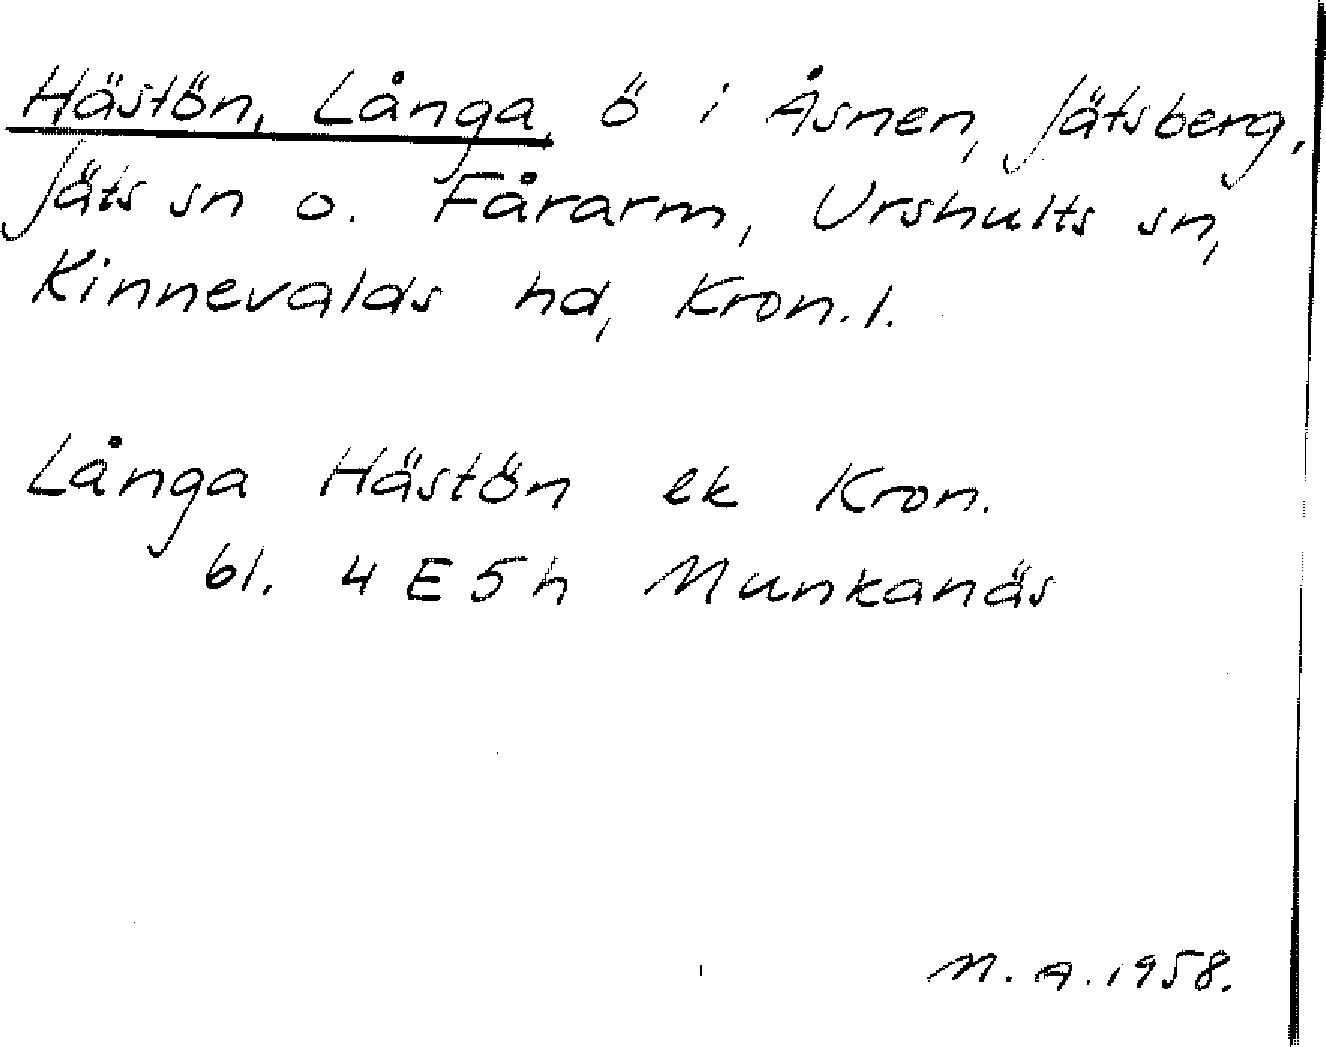 Hästön, Långa, ö i Åsnen, Jätsberg,
Jäts sn o. Fårarm, Urshults sn,
Kinnevalds hd, Kron. l.
Långa Hästön ek Kron.
bl. 4 E 5 h Munkanäs
M. A. 1958.